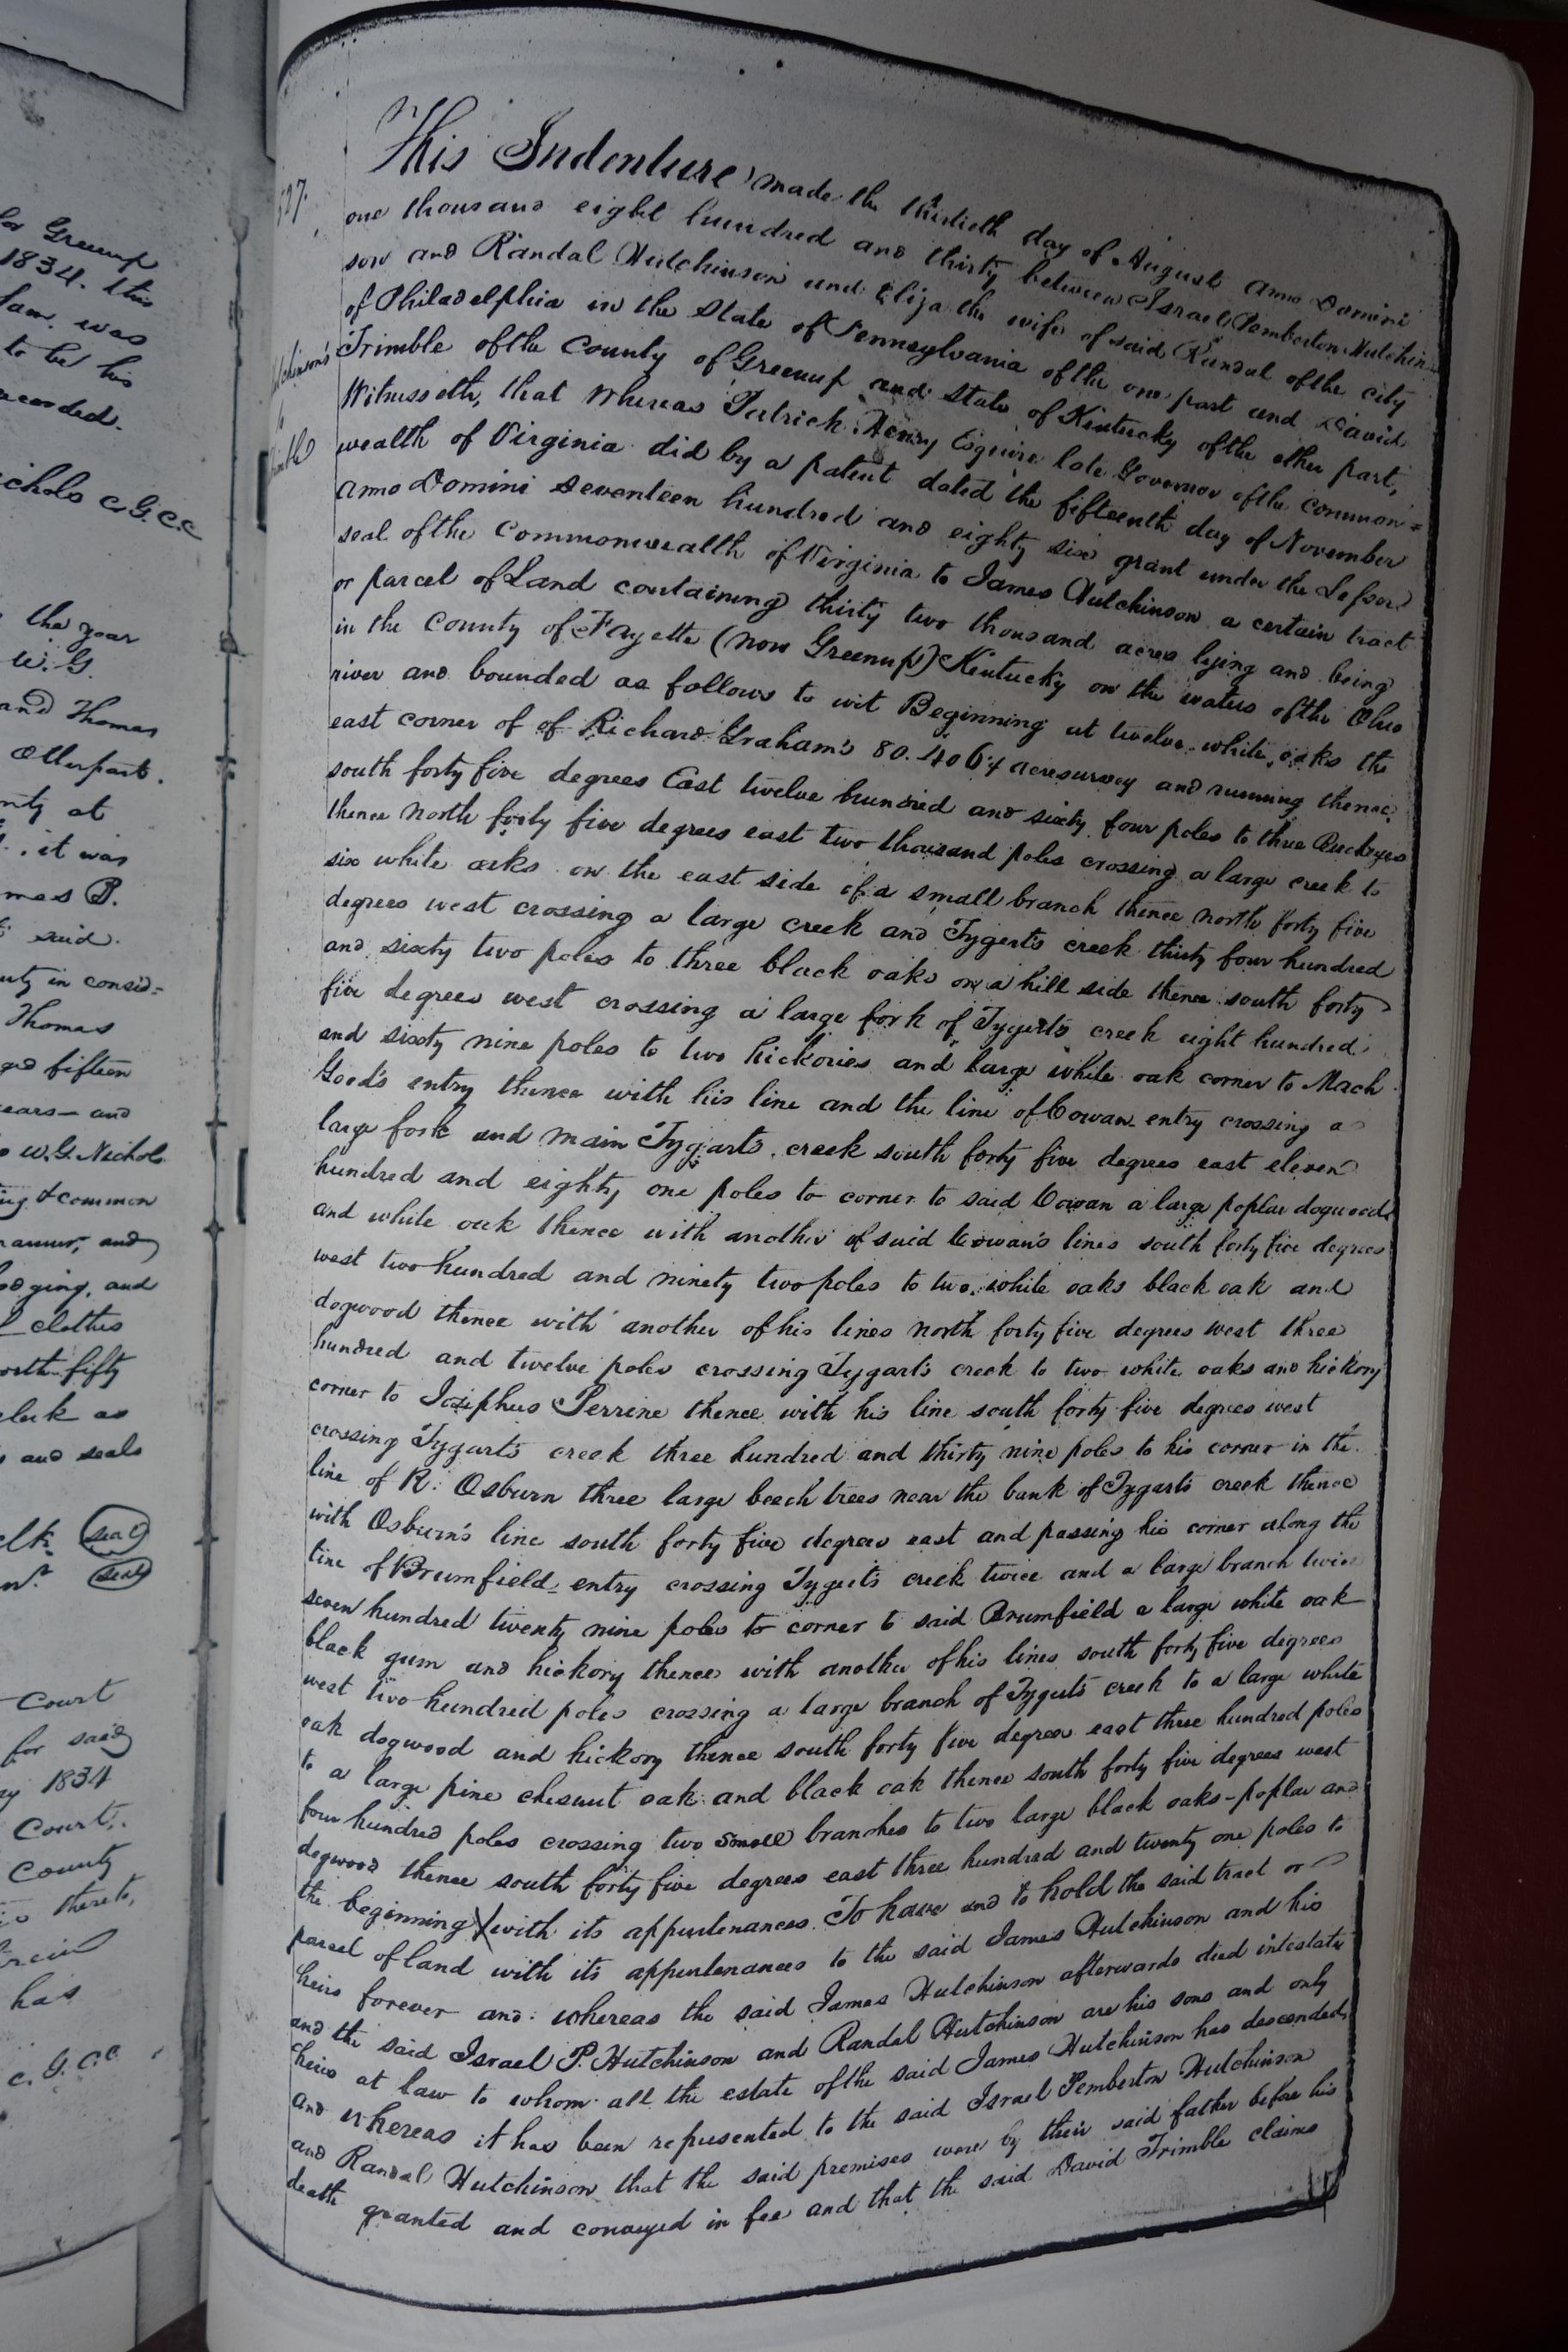 for Greenup
1834. this
was
to be his
recorded.
Nichols C.G.C.C
the year
W. G.
and Thomas
Otherpart.
at
it was
mas B.
said
in consid=
Thomas
fifteen
years and
W. G. Nichols
& common
manner, and
lodging, and
clothes
worth fifty
clerk as
and seals
seal
seal
Court
for said
1834
Court,
County
thereto,
has
c. G. C.C
527.
Hutchinson's
to
Trimble
This Indenture made the thirtieth day of August Anno Domini
one thousand eight hundred and thirty between Israel Pemberton Hutchin
son and Randal Hutchinson and Eliza the wife of said Randal of the city
of Philadelphia in the State of Pennsylvania of the one part and David
Trimble of the County of Greenup and State of Kentucky of the other part,
Witnesseth, that Whereas Patrick Henry Esquire late Governor of the common=
wealth of Virginia did by a patent dated the fifteenth day of November
Anno Domini seventeen hundred and eighty six grant under the Lesser
seal of the Commonwealth of Virginia to James Hutchinson a certain tract
or parcel of Land containing thirty two thousand acres lying and being
in the County of Fayette (now Greenup) Kentucky on the waters of the Ohio
river and bounded as follows to wit Beginning at twelve white oaks the
east corner of of Richard Graham's 80.406¼ acre survey and running thence
south forty five degrees East twelve hundred and sixty four poles to three Buckeyes
thence North forty five degrees east two thousand poles crossing a large creek to
six white oaks on the east side of a small branch thence North forty five
degrees west crossing a large creek and Tygerts creek thirty four hundred
and sixty two poles to three black oaks on a hill side thence south forty
five degrees west crossing a large fork of Tygerts creek eight hundred
and sixty nine poles to two hickories and large white oak corner to Mach
Good's entry thence with his line and the line of Cowan entry crossing a
large fork and main Tygarts creek south forty five degrees east eleven
hundred and eighty one poles to corner to said Cowan a large poplar dogwood
and white oak thence with another of said Cowan's lines south forty five degrees
west two hundred and ninety two poles to two white oaks black oak and
dogwood thence with another of his lines north forty five degrees west three
hundred and twelve poles crossing Tygarts creek to two white oaks and hickory
corner to Josephus Perrine thence with his line south forty five degrees west
crossing Tygarts creek three hundred and thirty nine poles to his corner in the
line of R. Osburn three large beech trees near the bank of Tygarts creek thence
with Osburn's line south forty five degrees east and passing his corner along the
line of Brumfield entry crossing Tygerts creek twice and a large branch twice
seven hundred twenty nine poles to corner to said Brumfield a large white oak
black gum and hickory thence with another of his lines south forty five degrees
west two hundred poles crossing a large branch of Tygerts creek to a large white
oak dogwood and hickory thence south forty five degrees east three hundred poles
to a large pine chesnut oak and black oak thence south forty five degrees west
four hundred poles crossing two small branches to two large black oaks - poplar and
dogwood thence south forty five degrees east three hundred and twenty one poles to
the beginning with its appurtenances. To have and to hold the said tract or
parcel of land with its appurtenances to the said James Hutchinson and his
heirs forever and whereas the said James Hutchinson afterwards died intestate
and the said Israel P. Hutchinson and Randal Hutchinson are his sons and only
heirs at law to whom all the estate of the said James Hutchinson has descended,
and whereas it has been represented to the said Israel Pemberton Hutchinson
and Randal Hutchinson that the said premises were by their said father before his
death granted and conveyed in fee and that the said David Trimble claims